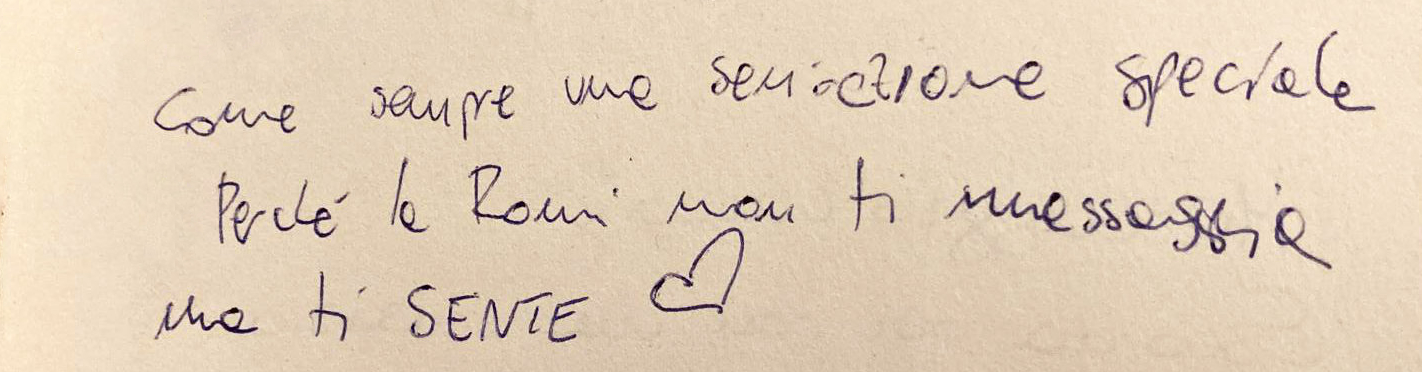 Come sempre una sensazione speciale
Perché la Romi non ti messaggia
ma ti SENTE